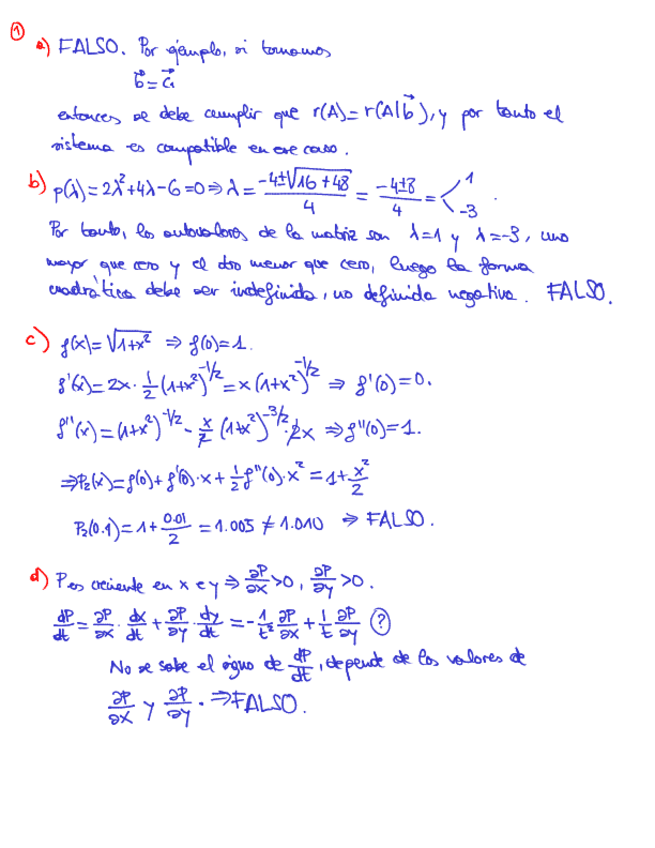 ①
a) FALSO. Por ejemplo, si tomamos
b⃗ = a⃗₁
entonces se debe cumplir que r(A) = r(A|b⃗), y por tanto el
sistema es compatible en ese caso.
b) p(λ) = 2λ² + 4λ - 6 = 0 ⇒ λ = (-4 ± √(16 + 48))/4 = (-4 ± 8)/4 = < 1, -3
Por tanto, los autovalores de la matriz son λ=1 y λ=-3, uno
mayor que cero y el otro menor que cero, luego la forma
cuadrática debe ser indefinida, no definida negativa. FALSO.
c) f(x) = √(1+x²) ⇒ f(0) = 1.
f'(x) = 2x · 1/2 (1+x²)^(-1/2) = x (1+x²)^(-1/2) ⇒ f'(0) = 0.
f''(x) = (1+x²)^(-1/2) - x/2 (1+x²)^(-3/2) · 2x ⇒ f''(0) = 1.
⇒ P₂(x) = f(0) + f'(0)·x + 1/2 f''(0)·x² = 1 + x²/2
P₂(0.1) = 1 + 0.01/2 = 1.005 ≠ 1.010 ⇒ FALSO.
d) P es creciente en x e y ⇒ ∂P/∂x > 0, ∂P/∂y > 0.
dP/dt = ∂P/∂x · dx/dt + ∂P/∂y · dy/dt = -1/t² ∂P/∂x + 1/t ∂P/∂y (?)
No se sabe el signo de dP/dt, depende de los valores de
∂P/∂x y ∂P/∂y. ⇒ FALSO.